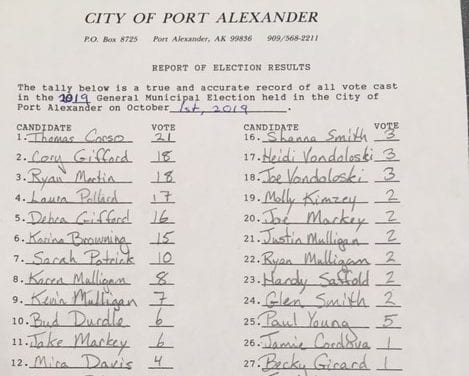 CITY OF PORT ALEXANDER
P.O. Box 8725 Port Alexander, AK 99836 909/568-2211
REPORT OF ELECTION RESULTS
The tally below is a true and accurate record of all vote cast
in the 2019 General Municipal Election held in the City of
Port Alexander on October 1st, 2019.
CANDIDATE VOTE CANDIDATE VOTE
1. Thomas Corso 21 16. Shanna Smith 3
2. Cory Gifford 18 17. Heidi Vondoloski 3
3. Ryan Martin 18 18. Joe Vondoloski 3
4. Laura Pollard 17 19. Molly Kimzey 2
5. Debra Gifford 16 20. Joe Markey 2
6. Karina Browning 15 21. Justin Mulligan 2
7. Sarah Patrick 10 22. Ryan Mulligan 2
8. Karen Mulligan 8 23. Hardy Saffold 2
9. Kevin Mulligan 7 24. Glen Smith 2
10. Bud Durdle 6 25. Paul Young 5
11. Jake Markey 6 26. Jamie Cordova 1
12. Mira Davis 4 27. Becky Girard 1